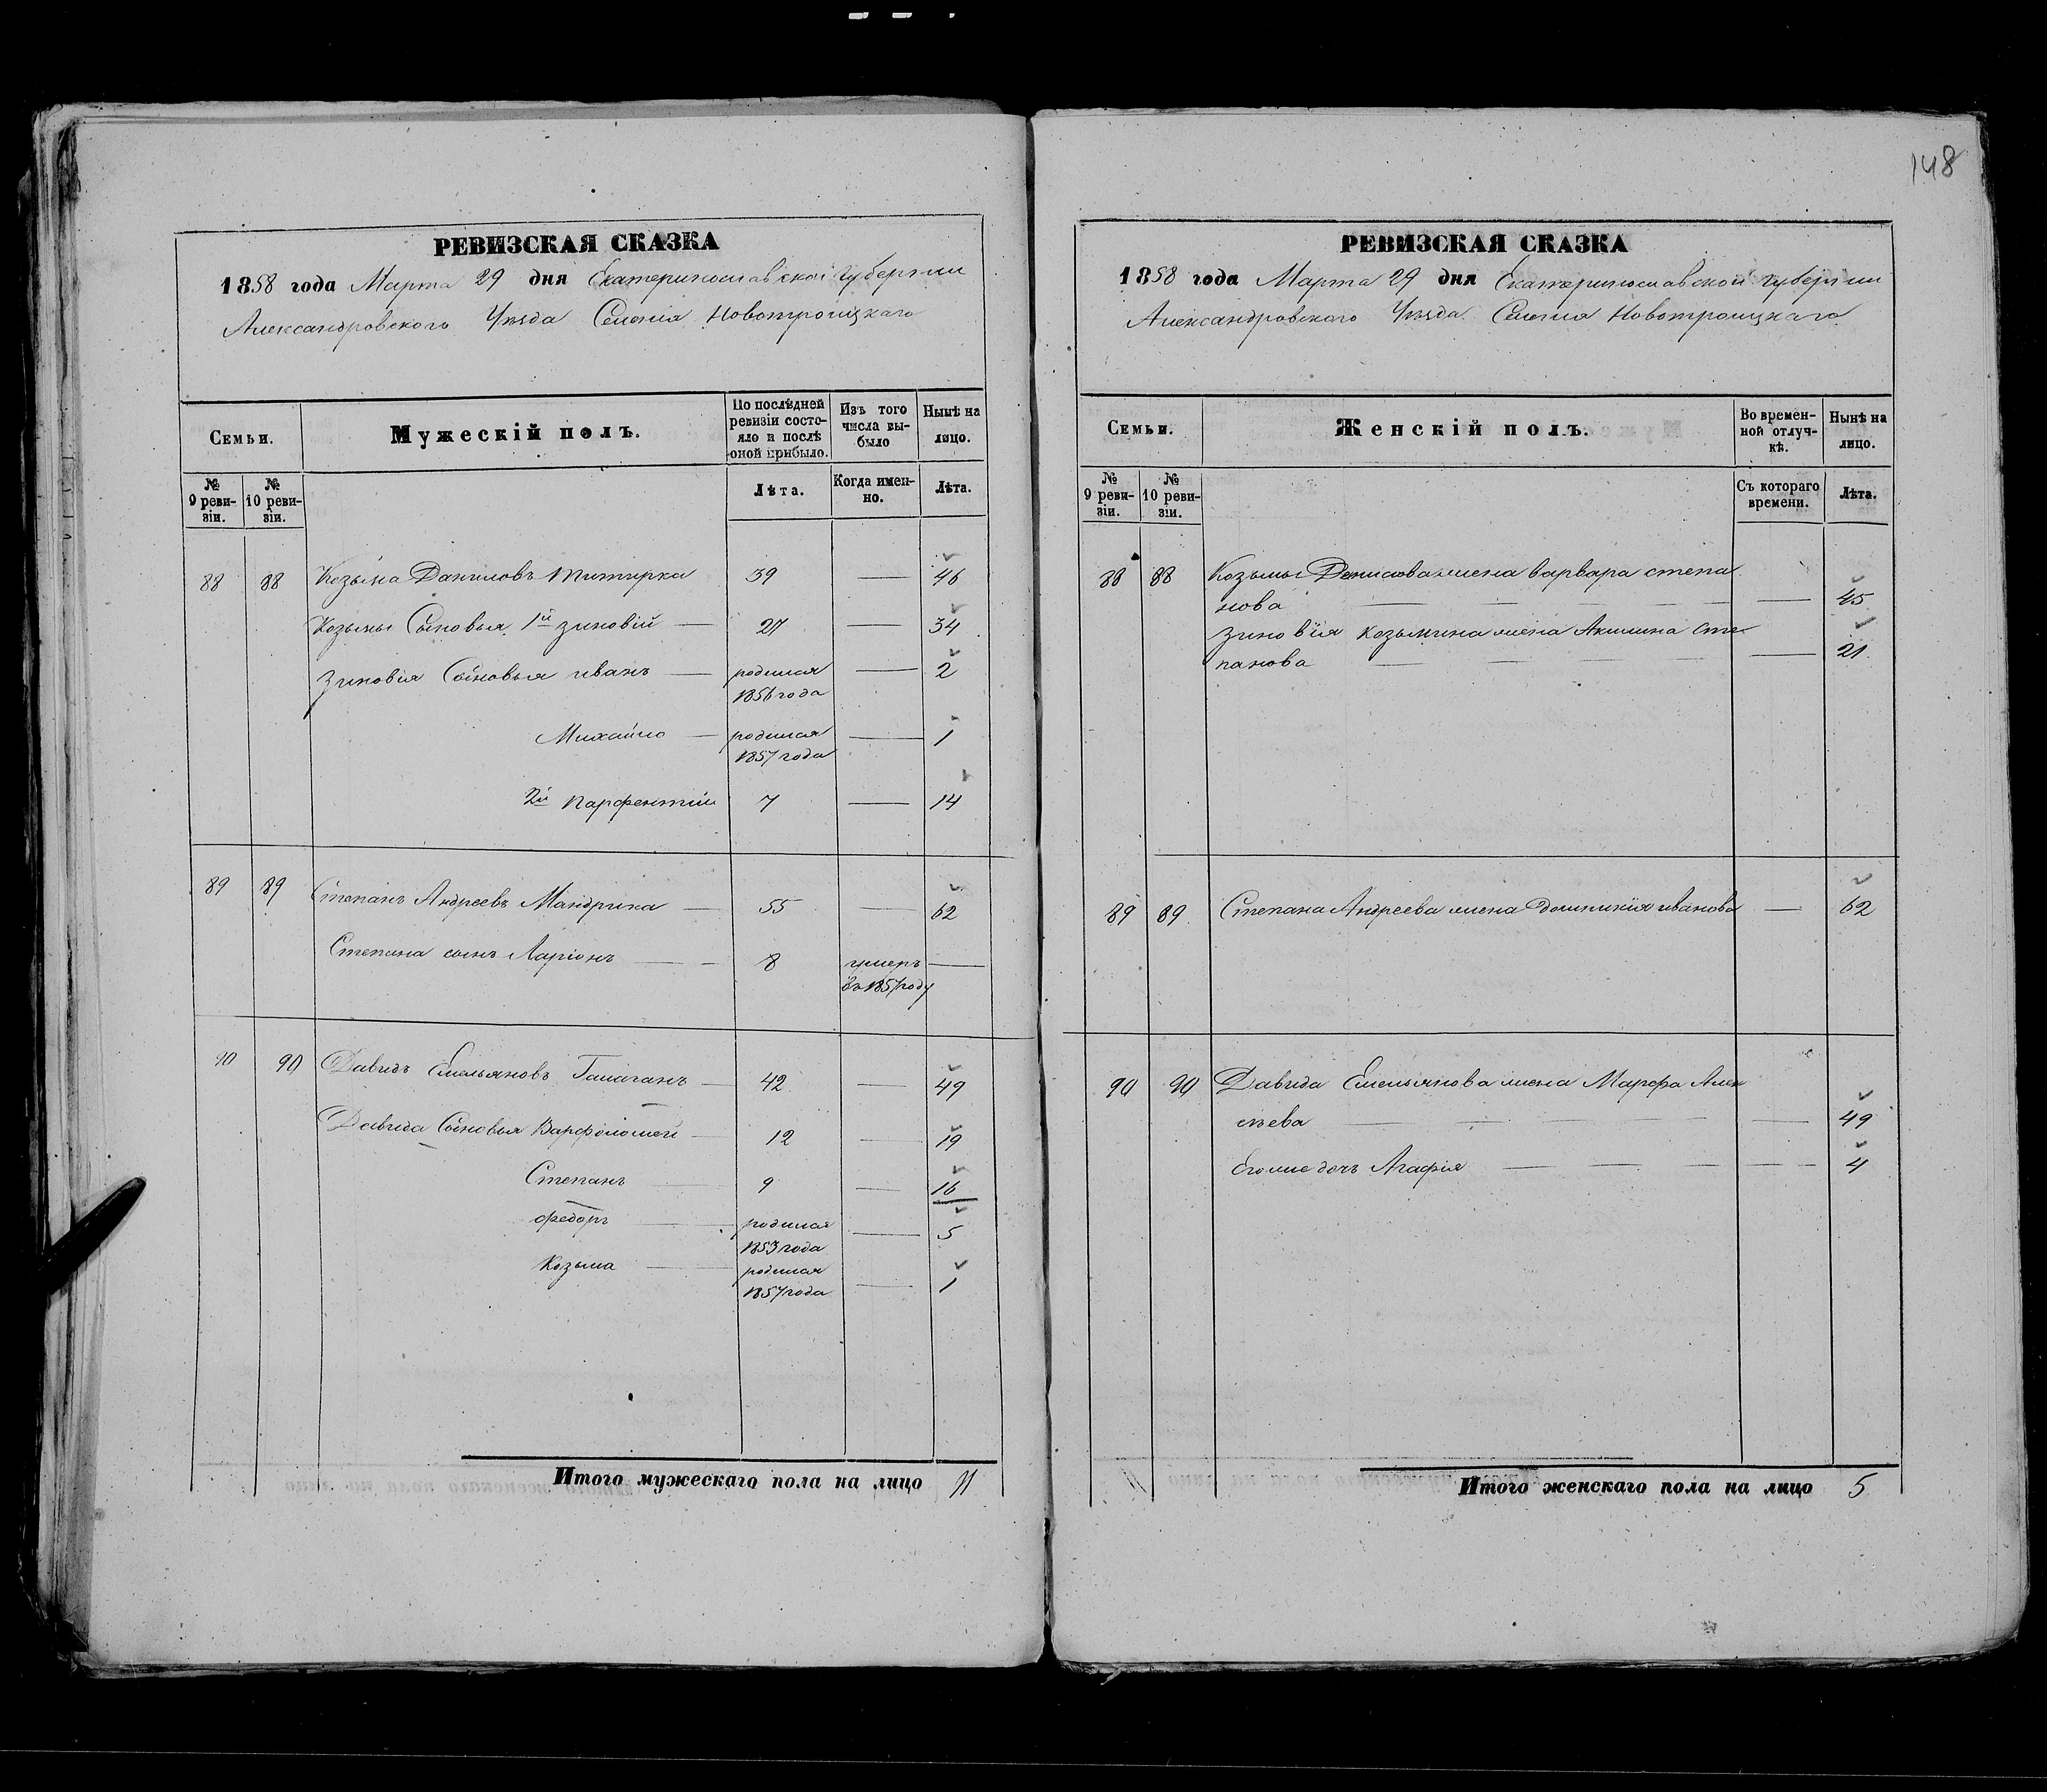 148
РЕВИЗСКАЯ СКАЗКА
1858 года Марта 29 дня Екатеринославской губернии
Александровского Уѣзда Селенія Новотроицкаго
Семьи.
Мужескій полъ.
По послѣдней ревизіи состояло и послѣ оной прибыло.
Изъ того числа выбыло
Нынѣ на лицо.
№ 9 ревизіи.
№ 10 ревизіи.
Лѣта.
Когда именно.
Лѣта.
88 88 Козьма Даниловъ 39 — 46
Козьмы Сыновья 1й Зиновій — 27 — 34
Зиновія Сыновья Иванъ — родился 1856 года — 2
Михайло — родился 1857 года — 1
2й Парфентій 7 — 14
89 89 Степанъ Андреевъ Мандрика — 55 — 62
Степана сынъ Ларіонъ — 8 умеръ въ 1857 году —
90 90 Давидъ Емельяновъ Галаганъ — 42 — 49
Давида Сыновья Варфоломей — 12 — 19
Степанъ — 9 — 16
Федоръ — родился 1853 года — 5
Козьма — родился 1857 года — 1
Итого мужескаго пола на лицо 11
РЕВИЗСКАЯ СКАЗКА
1858 года Марта 29 дня Екатеринославской губернии
Александровского Уѣзда Селения Новотроицкаго
Семьи.
Женскій полъ.
Во временной отлучкѣ.
Нынѣ на лицо.
№ 9 ревизіи.
№ 10 ревизіи.
Съ котораго времени.
Лѣта.
88 88 Козьмы жена Варвара Степа
нова — 45
Зиновія Козьмина жена Акилина Сте
панова — 21
89 89 Степана Андреева жена Домникія Иванова — 62
90 90 Давида Емельянова жена Марфа Алек
сѣева — 49
Его же дочь Агафія — 4
Итого женскаго пола на лицо 5